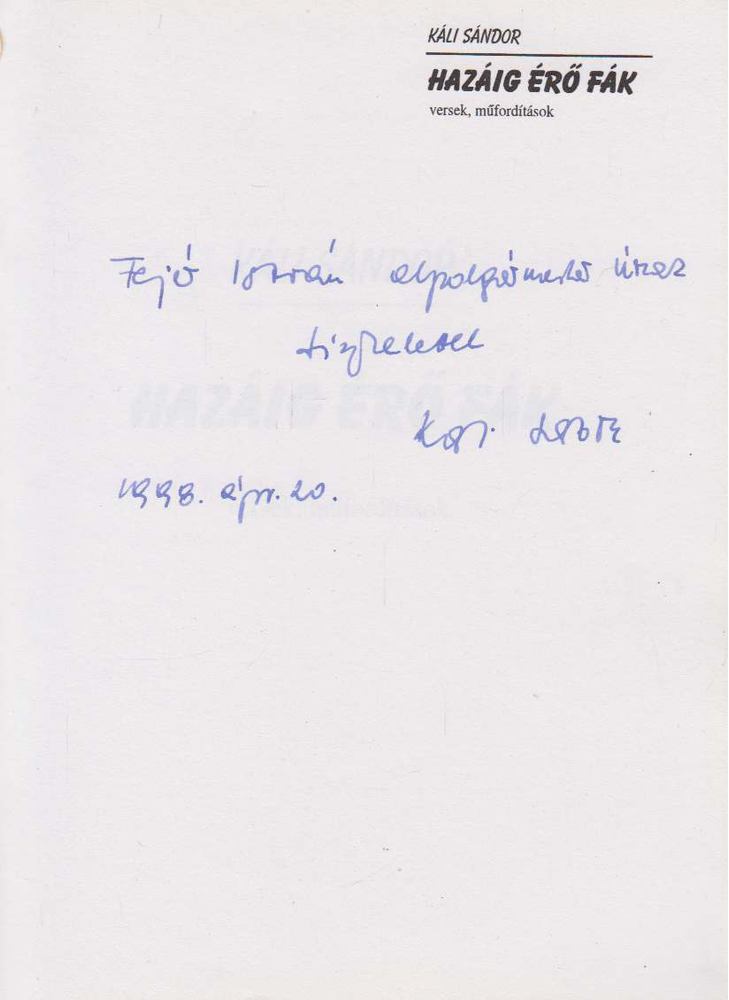 KÁLI SÁNDOR
HAZÁIG ÉRŐ FÁK
versek, műfordítások
Fejő István alpolgármester úrnak
tisztelettel
Káli
1998. ápr. 20.